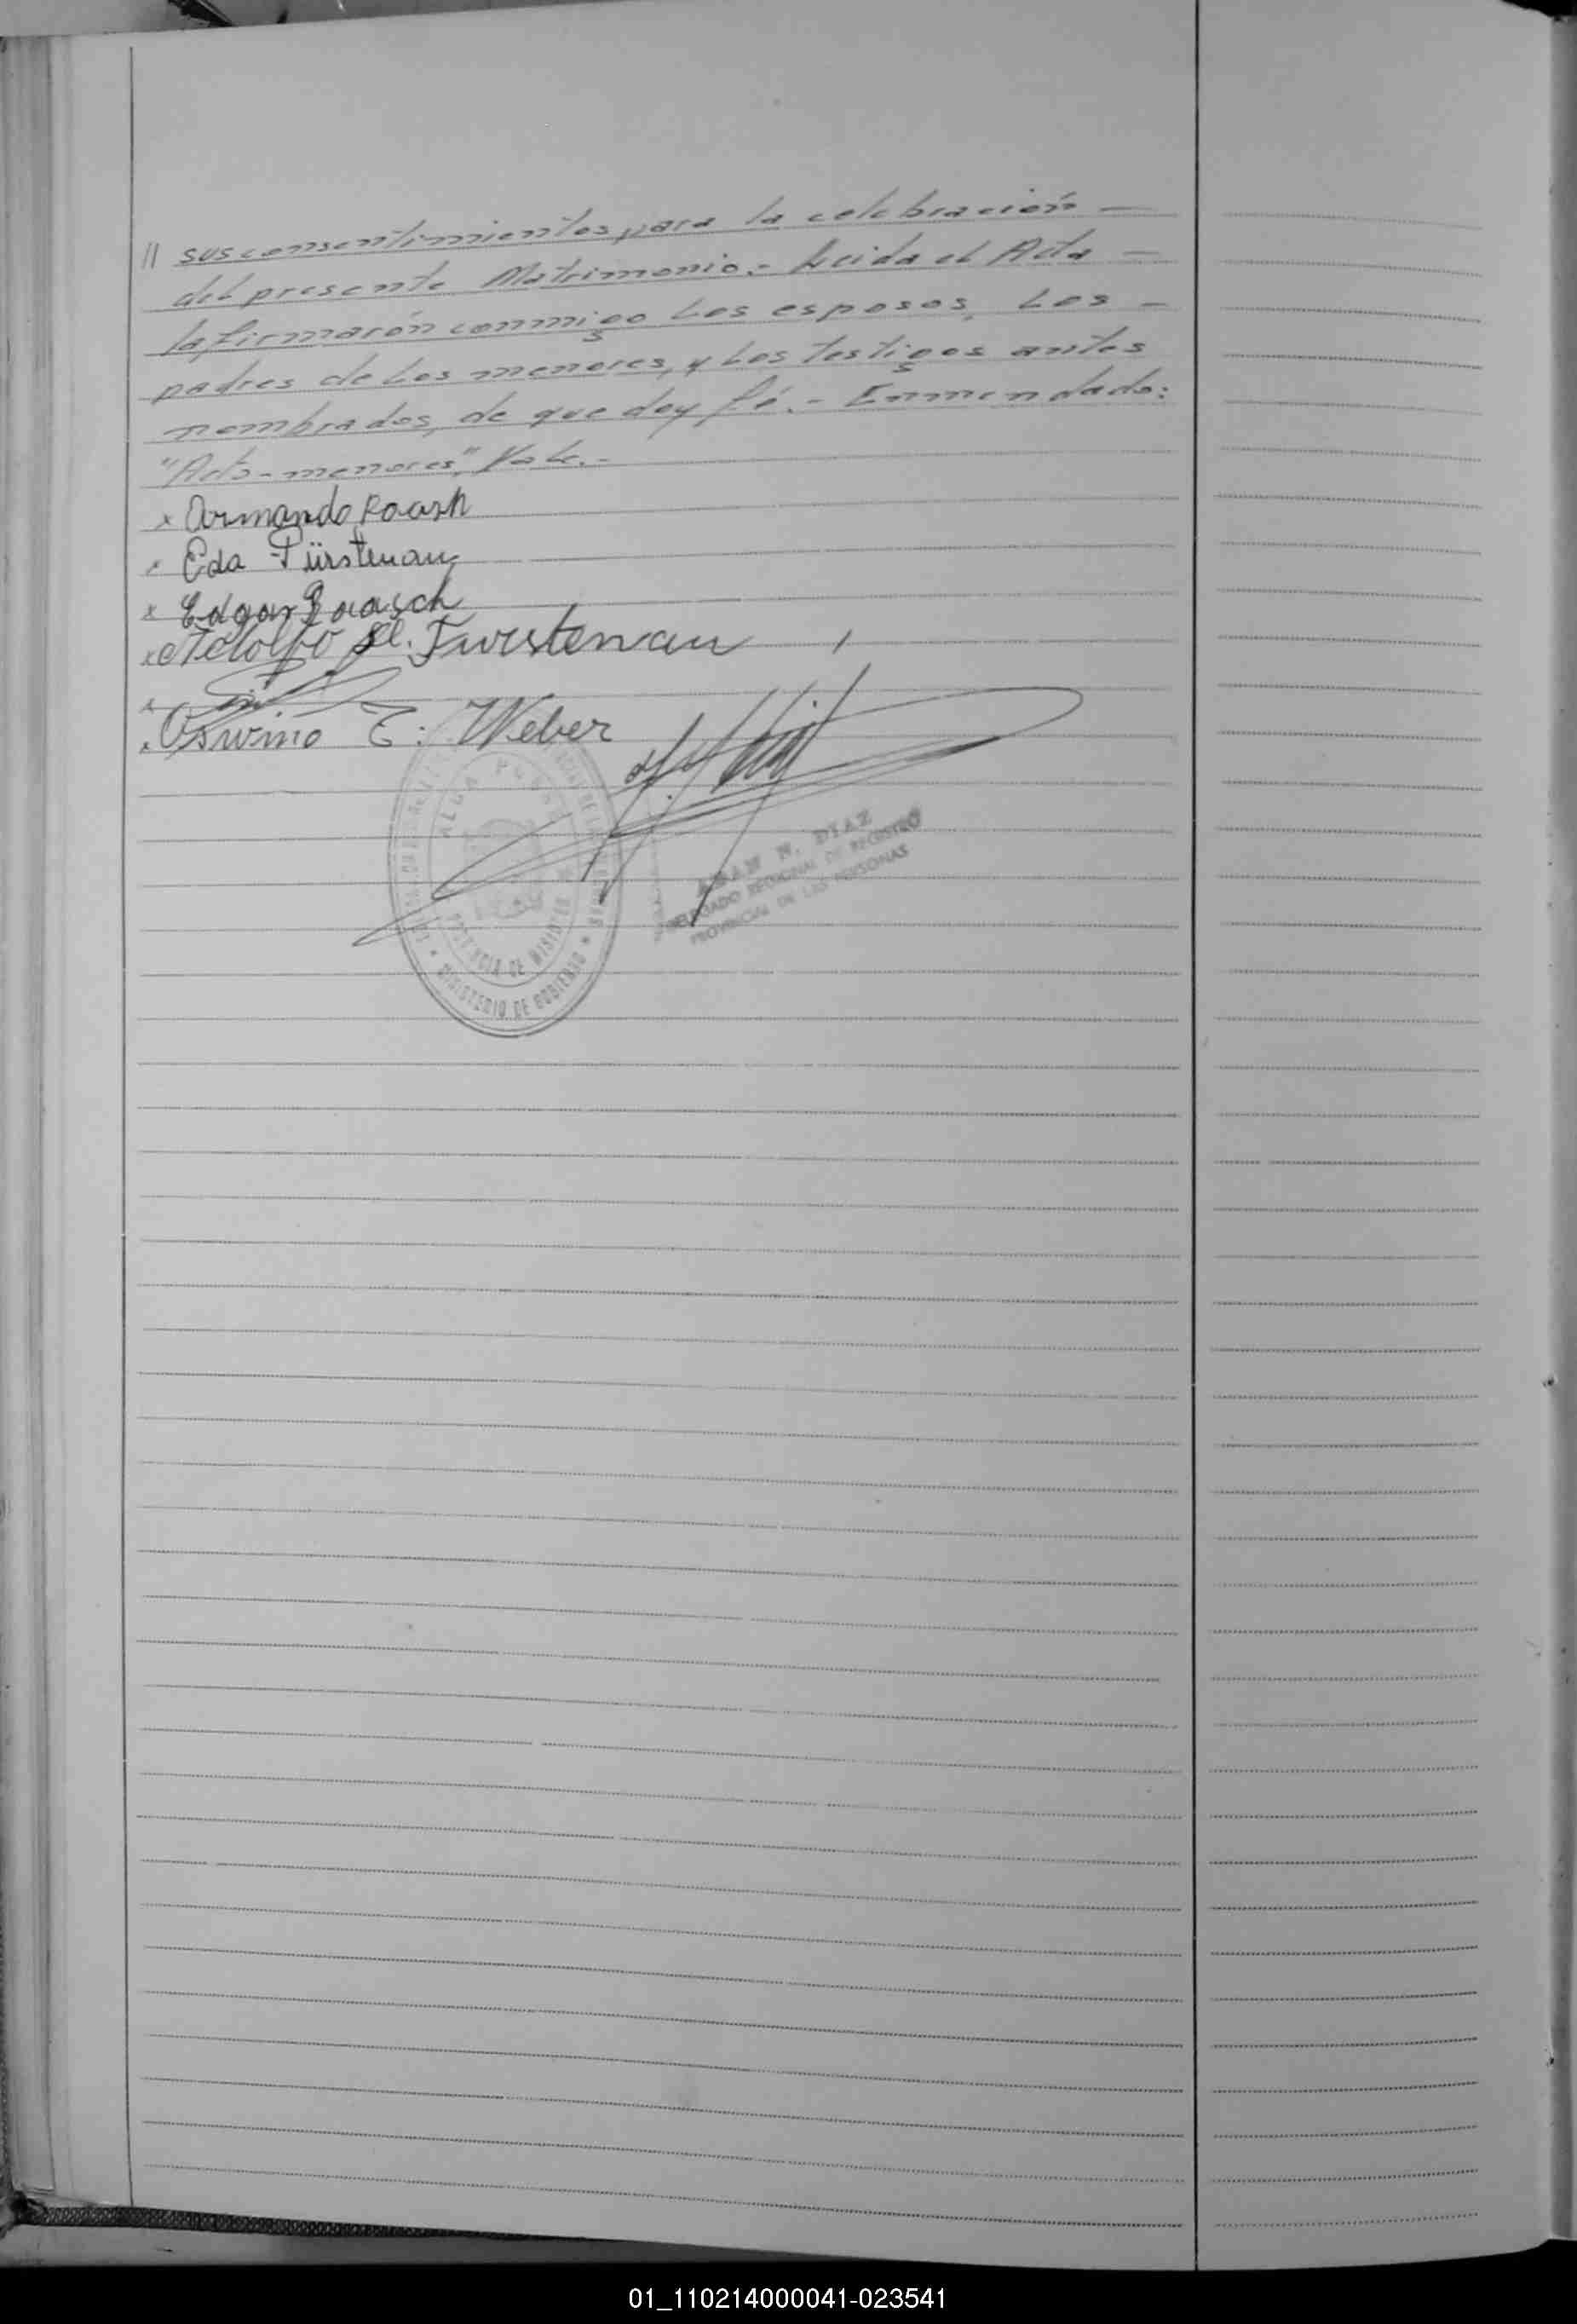 // sus consentimientos, para la celebración —
del presente Matrimonio.- Leida el Acta —
la firmarón conmigo Los esposos, Los —
padres de Los menores, y Los testigos antes
nombrados, de que doy fé.- Enmendado:
"Acta-menores", Vale.-
x Armando Roash
x Eda Fürstenau
x Edgar Raasch
x Adolfo Fursternau
x
x Oswino E. Weber
ALBA POSSE
PROVINCIA DE MISIONES
MINISTERIO DE GOBIERNO
N. DIAZ
DELEGADO REGIONAL DE REGISTRO
PROVINCIAL DE LAS PERSONAS
01_110214000041-023541